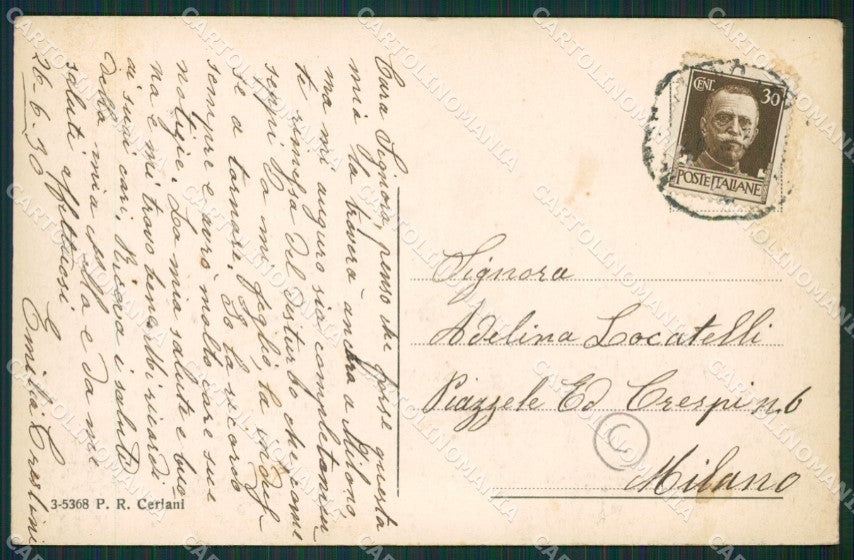 Cara Signora, penso che forse questa
mia la troverà ancora a Milano
ma mi auguro sia completamen
te rimessa del disturbo che come
seppi da mi figli, la
se a tornare. Io la ricordo
sempre e avrò molto care sue
notizie. La mia salute e buo
na e mi trovo bene. Mi ricordi
ai suoi cari. Riceva i saluti
della mia Stella e da me
saluti affettuosi
26-6-30 Emilia Crestini
3-5368 P. R. Ceriani
CENT. 30
POSTE ITALIANE
Signora
Adelina Locatelli
Piazzele Ed Crespi n. 6
Milano
©
CARTOLINOMANIA